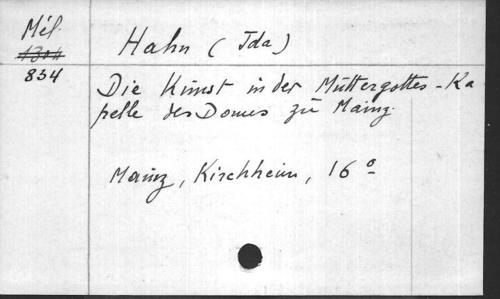 Mél.
1304
834
Hahn (Ida)
Die Kunst in der Muttergottes-Ka
pelle des Domes zu Mainz.
Mainz, Kirchheim, 16°